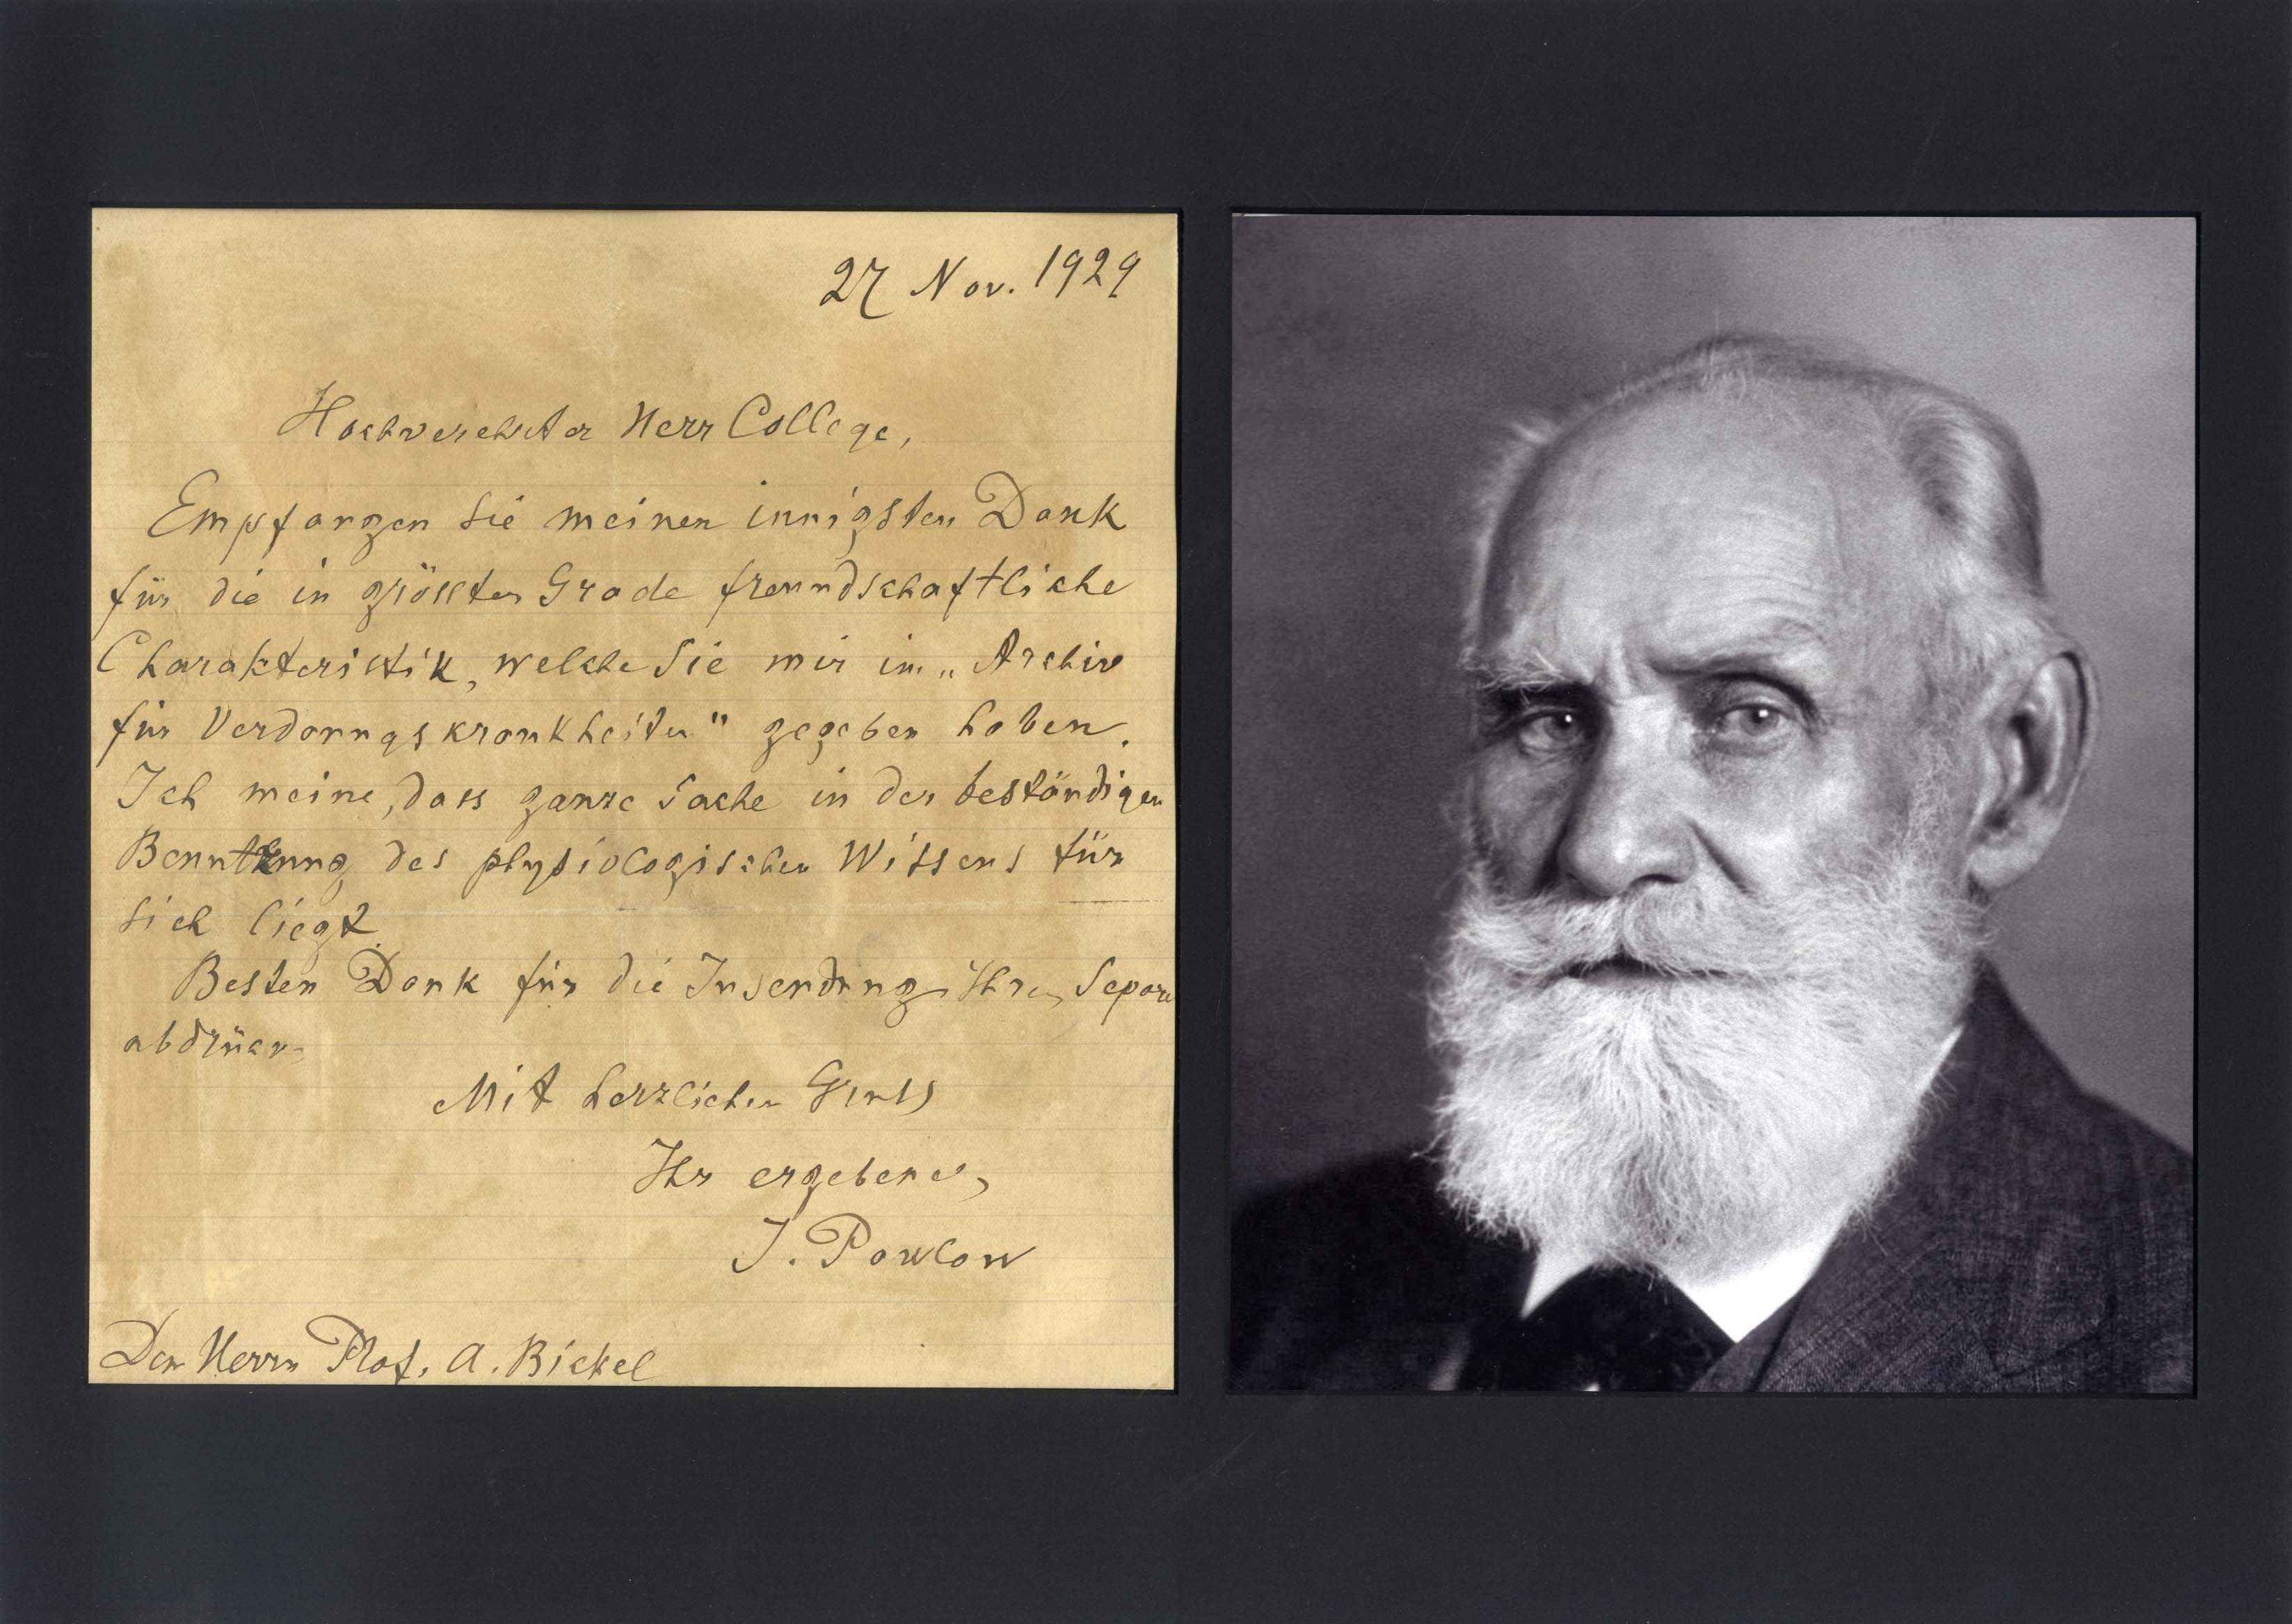 27 Nov. 1929
Hochverehrter Herr College,
Empfangen Sie meinen innigsten Dank
für die in grössten Grade freundschaftliche
Charakteristik, welche Sie mir im „Archiv
für Verdanngskrankheiten" gegeben haben.
Ich meine, dass ganze Sache in der beständigen
Benutzung des physiologischen Wissens für
sich liegt.
Besten Dank für die Insendung Ihrer Separa
abdrücke
Mit herzlichen Gruss
Ihr ergebener
J. Pawlow
Den Herrn Prof. A. Bickel